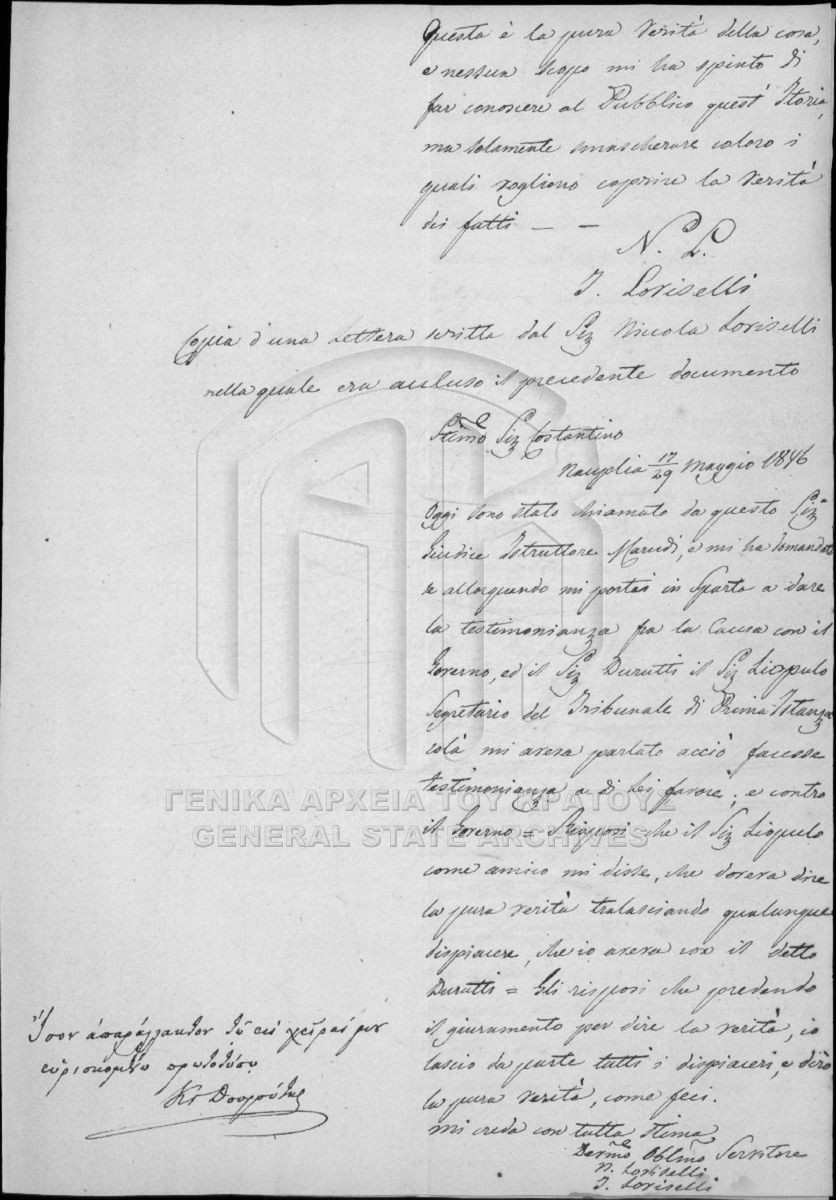 Questa è la pura Verità della cosa,
e nessun scopo mi ha spinto di
far conoscere al Pubblico quest' Istoria,
ma solamente smascherare coloro i
quali vogliono coprire la Verità
dei fatti — –
N. L.
I. Loriselli
Copia d'una Lettera scritta dal Sig Niccola Loriselli
nella quale era accluso il precedente documento
Stimo Sig Costantino
Nauplia 17/29 Maggio 1846
Oggi sono stato chiamato da questo Sigr
Giudice Istruttore e mi ha domandato
se allorquando mi portai in Sparta a dare
la testimonianza fra la Causa con il
Governo, ed il Sig Durutti il Sig Liopulo
Segretario del Tribunale di Prima Istanza
colà mi aveva parlato acciò facesse
testimonianza a di Lei favore; e contro
il Governo = Risposi che il Sig Liopulo
come amico mi disse, che doveva dire
la pura verità tralasciando qualunque
dispiacere, che io aveva con il detto
Durutti = Gli risposi che predendo
il giuramento per dire la verità, io
lascio da parte tutti i dispiaceri, e dirò
la pura verità, come feci.
Mi creda con tutta stima
Devmo Oblmo Servitore
N. Loriselli
I. Loriselli
Ἴσον ἀπαράλλακτον τοῦ εἰς χεῖράς μου
εὑρισκομένου πρωτοτύπου
Κς Δουρούτης
ΓΕΝΙΚΑ ΑΡΧΕΙΑ ΤΟΥ ΚΡΑΤΟΥΣ
GENERAL STATE ARCHIVES